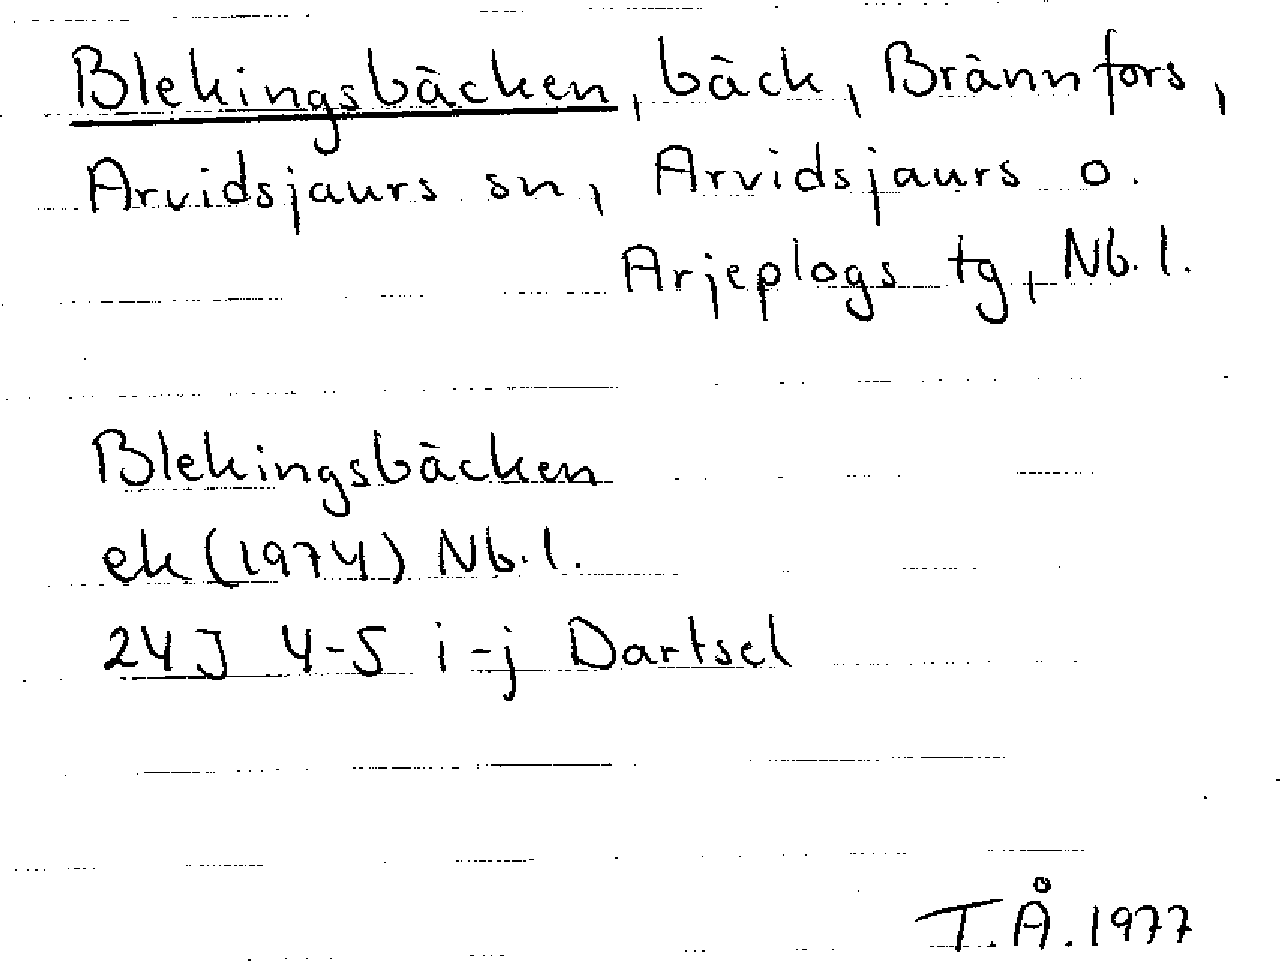 Blekingsbäcken, bäck, Brännfors,
Arvidsjaurs sn, Arvidsjaurs o.
Arjeplogs tg, Nb. l.
Blekingsbäcken
ek (1974) Nb. l.
24J 4-5 i-j Dartsel
T.Å. 1977